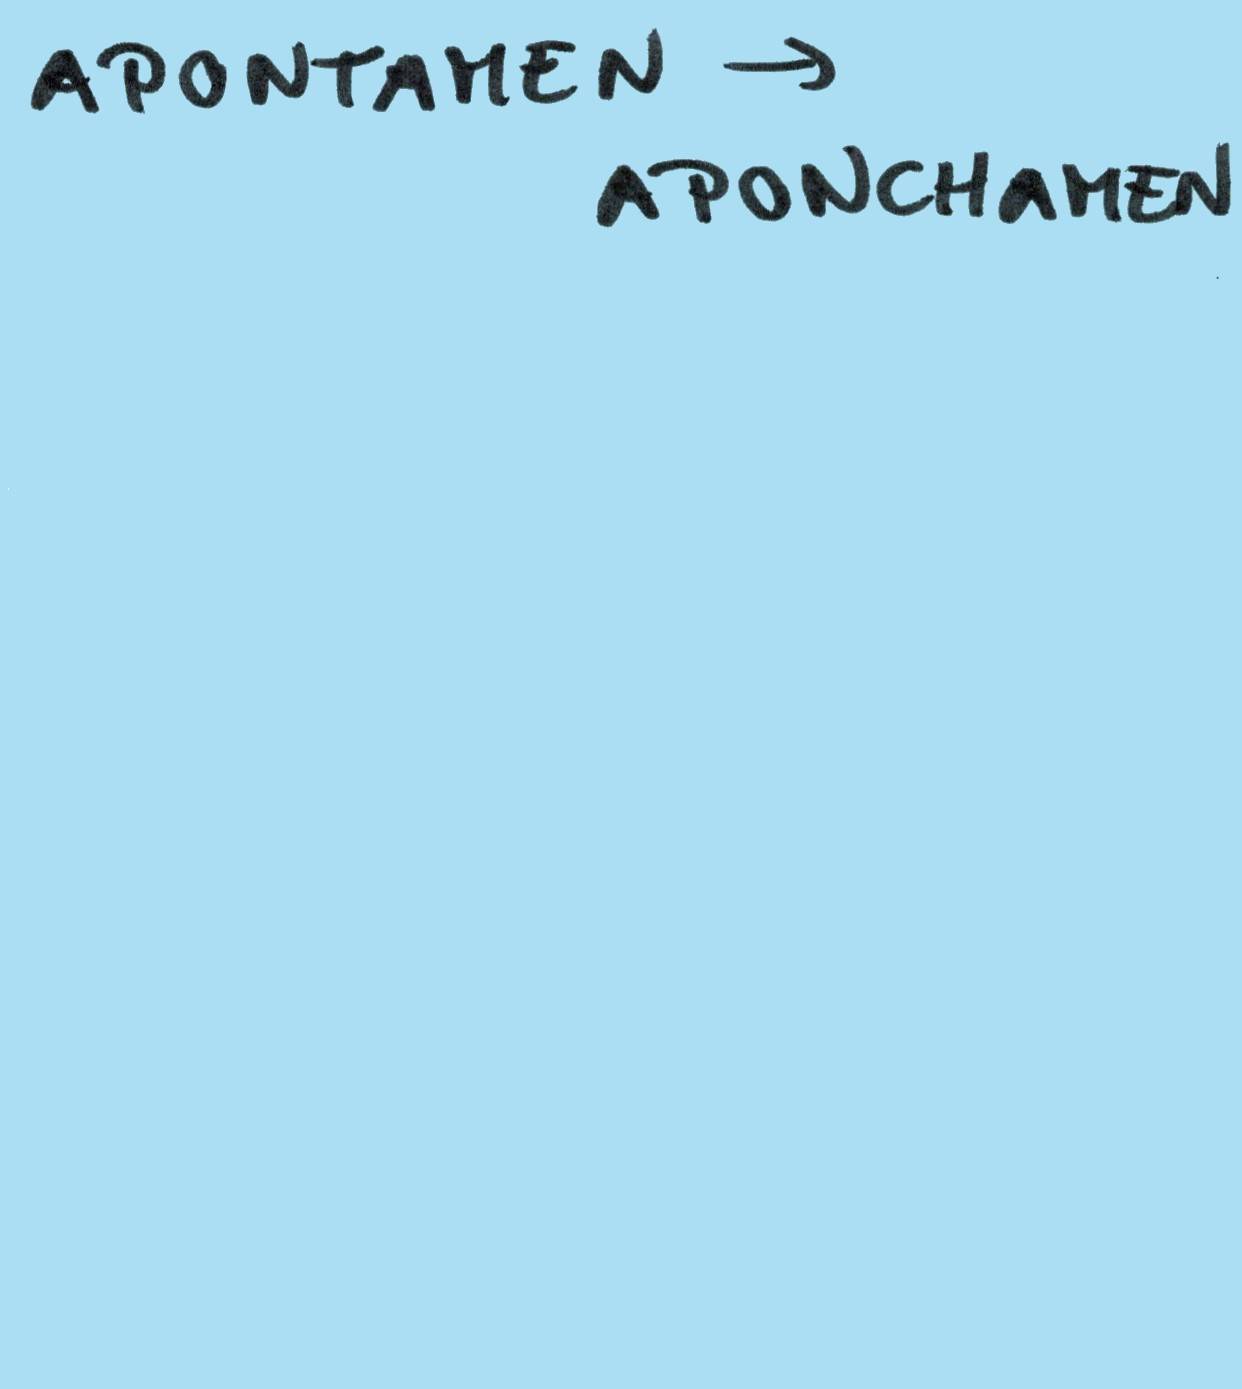 APONTAMEN →
APONCHAMEN